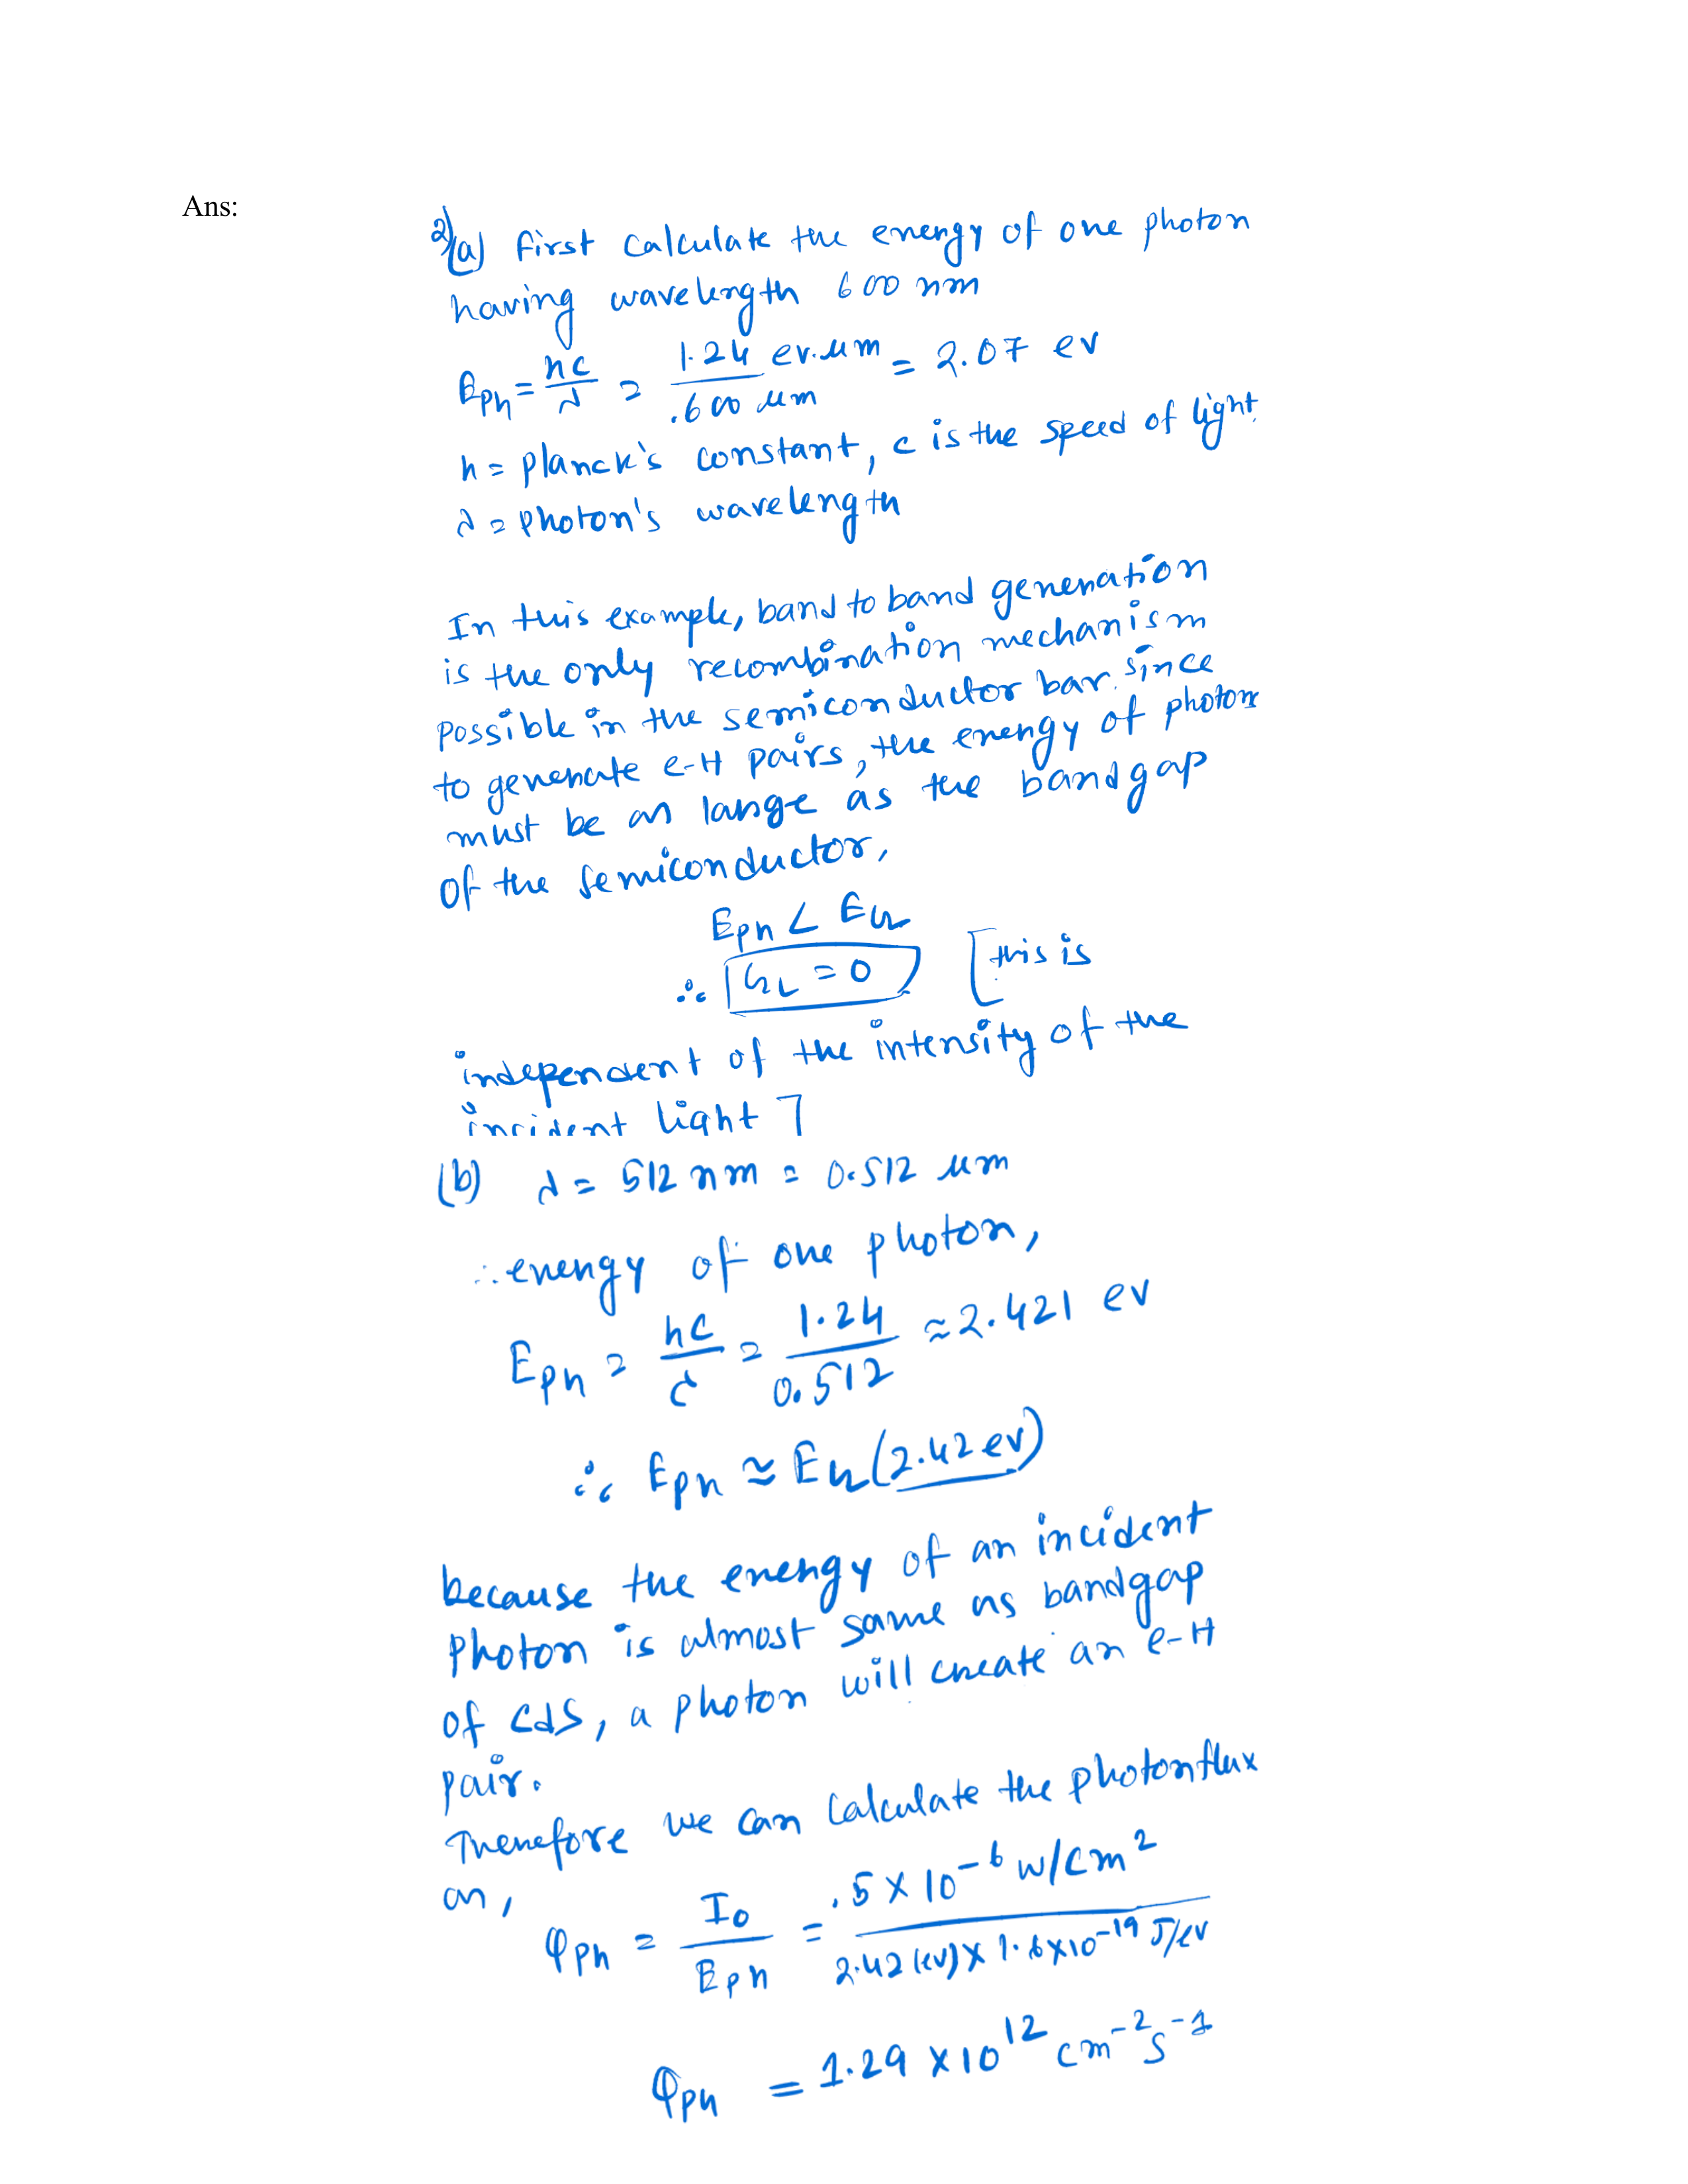 Ans:
2)(a) first calculate the energy of one photon
having wavelength 600 nm
Eph = hc/λ = 1.24 ev.μm/.600 μm = 2.07 ev
h = planck's constant, c is the speed of light.
λ = photon's wavelength
In this example, band to band generation
is the only recombination mechanism
possible in the semiconductor bar. since
to generate e-H pairs, the energy of photon
must be as large as the bandgap
of the semiconductor,
Eph < EG
∴ GL = 0 [this is
independent of the intensity of the
incident light]
(b) λ = 512 nm = 0.512 μm
∴ energy of one photon,
Eph = hc/λ = 1.24/0.512 ≈ 2.421 ev
∴ Eph ≈ EG (2.42 ev)
because the energy of an incident
photon is almost same as bandgap
of CdS, a photon will create an e-H
pair.
Therefore we can calculate the photon flux
as,
φph = I0/Eph = .5 × 10^-6 w/cm^2/2.42 (ev) × 1.6×10^-19 J/ev
φph = 1.29 × 10^12 cm^-2 s^-1